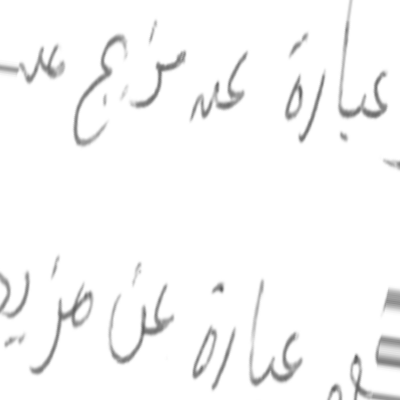 عبارة عن مزيج عن
عبارة عن مزيد